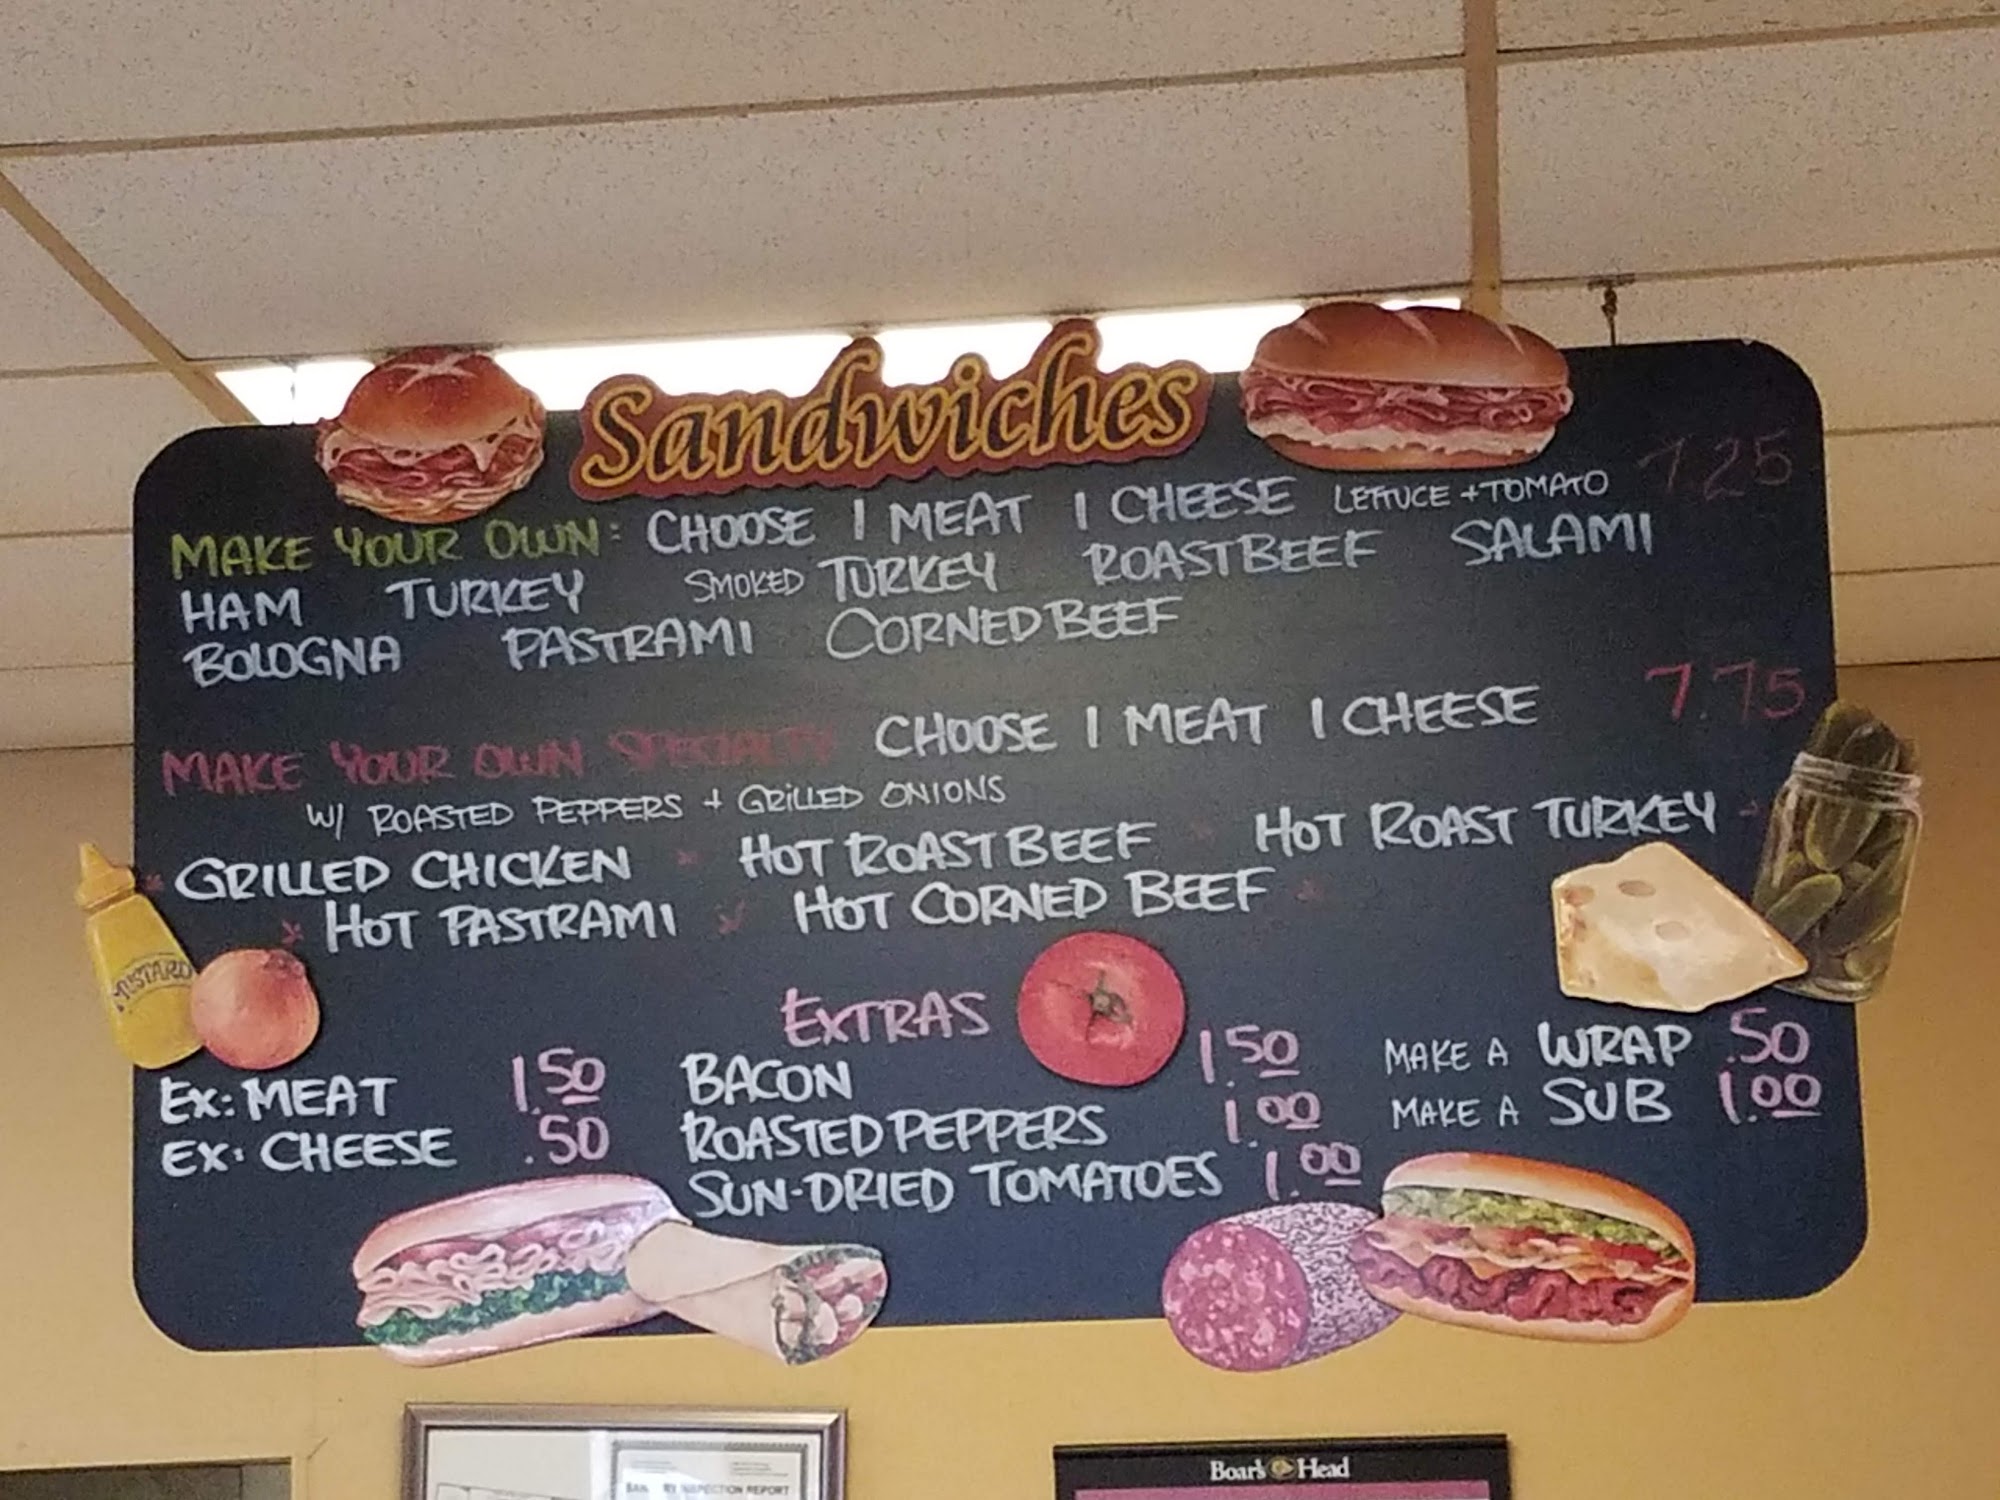 Sandwiches
MAKE YOUR OWN: CHOOSE 1 MEAT 1 CHEESE LETTUCE + TOMATO 7.25
HAM TURKEY SMOKED TURKEY ROAST BEEF SALAMI
BOLOGNA PASTRAMI CORNED BEEF
MAKE YOUR OWN SPECIALTY CHOOSE 1 MEAT 1 CHEESE 7.75
W/ ROASTED PEPPERS + GRILLED ONIONS
GRILLED CHICKEN HOT ROAST BEEF HOT ROAST TURKEY
HOT PASTRAMI HOT CORNED BEEF
MUSTARD
EXTRAS
EX: MEAT 1.50 BACON 1.50 MAKE A WRAP .50
EX: CHEESE .50 ROASTED PEPPERS 1.00 MAKE A SUB 1.00
SUN-DRIED TOMATOES 1.00
Boar's Head
INSPECTION REPORT